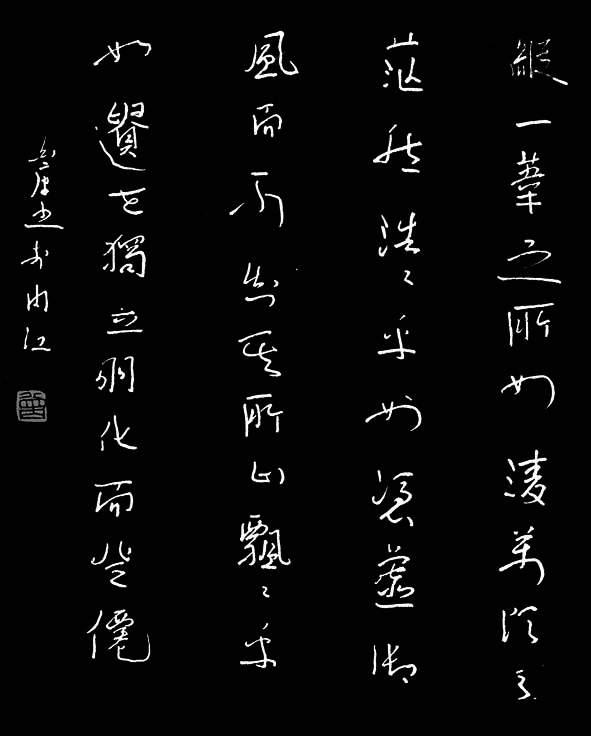 縱一葦之所如淩萬頃之
茫然浩々乎如憑虛御
風而不知其所止飄々乎
如遺世獨立羽化而登僊
书内江